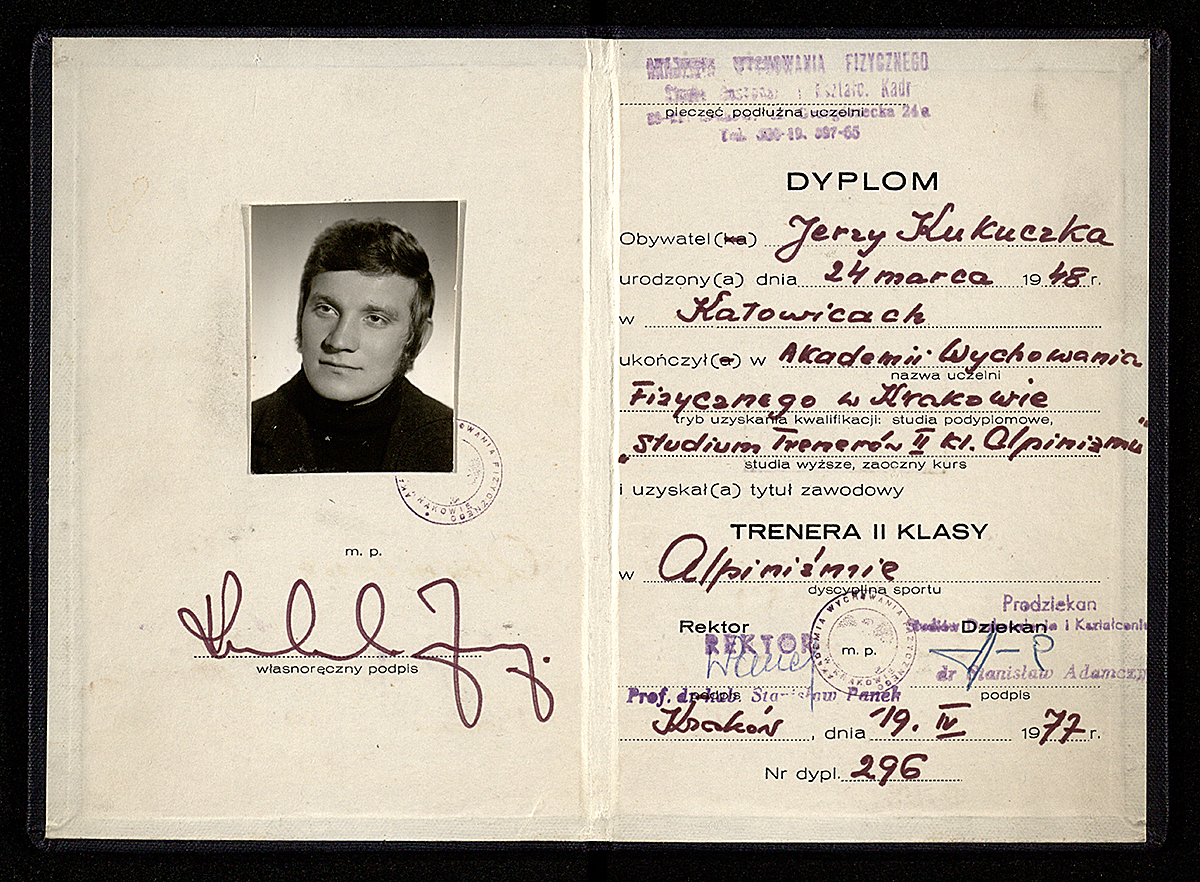 m. p.
własnoręczny podpis
WYCHOWANIA FIZYCZNEGO
Kadr
pieczęć podłużna uczelni
24a
Tel.
DYPLOM
Obywatel(ka) Jerzy Kukuczka
urodzony(a) dnia 24 marca 1948 r.
w Katowicach
ukończył(a) w Akademii Wychowania
nazwa uczelni
Fizycznego w Krakowie
tryb uzyskania kwalifikacji: studia podyplomowe,
„Studium Trenerów II kl. Alpinizmu"
studia wyższe, zaoczny kurs
i uzyskał(a) tytuł zawodowy
TRENERA II KLASY
w Alpiniźmie
dyscyplina sportu
AKADEMIA WYCHOWANIA FIZYCZNEGO W KRAKOWIE
Prodziekan
Rektor m. p. Dziekan
REKTOR
i Kształcenia
dr Stanisław
Prof. dr hab. Stanisław Panek
podpis podpis
Kraków, dnia 19. IV 1977 r.
Nr dypl. 296